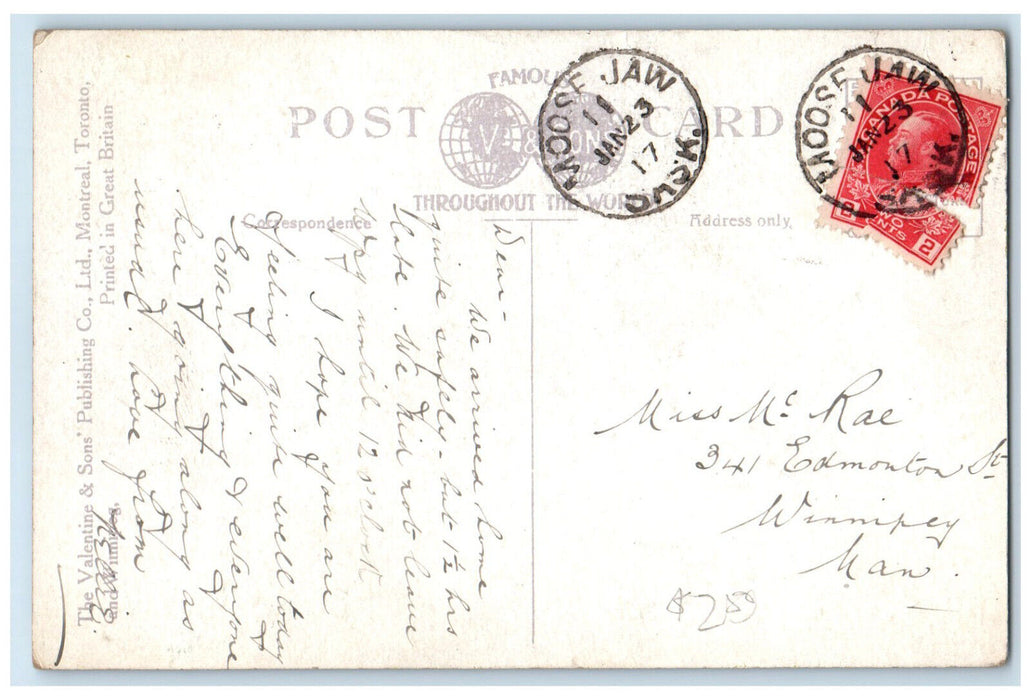 FAMOUS
POST CARD
V. & SONS
THROUGHOUT THE WORLD
Correspondence
Address only.
The Valentine & Sons' Publishing Co., Ltd., Montreal, Toronto,
and Winnipeg.
Printed in Great Britain
MOOSE JAW
11
JAN 23
17
SASK.
MOOSE JAW
11
JAN 23
17
CANADA POSTAGE
2
TWO CENTS
2
Dear -
We arrived home
quite safely - but 1½ hrs
late. We did not leave
Wpg until 12 o'clock
I hope you are
feeling quite well today &
Everything & everyone
here going along as
usual. Love from
Miss Mc Rae
341 Edmonton St
Winnipeg
Man.